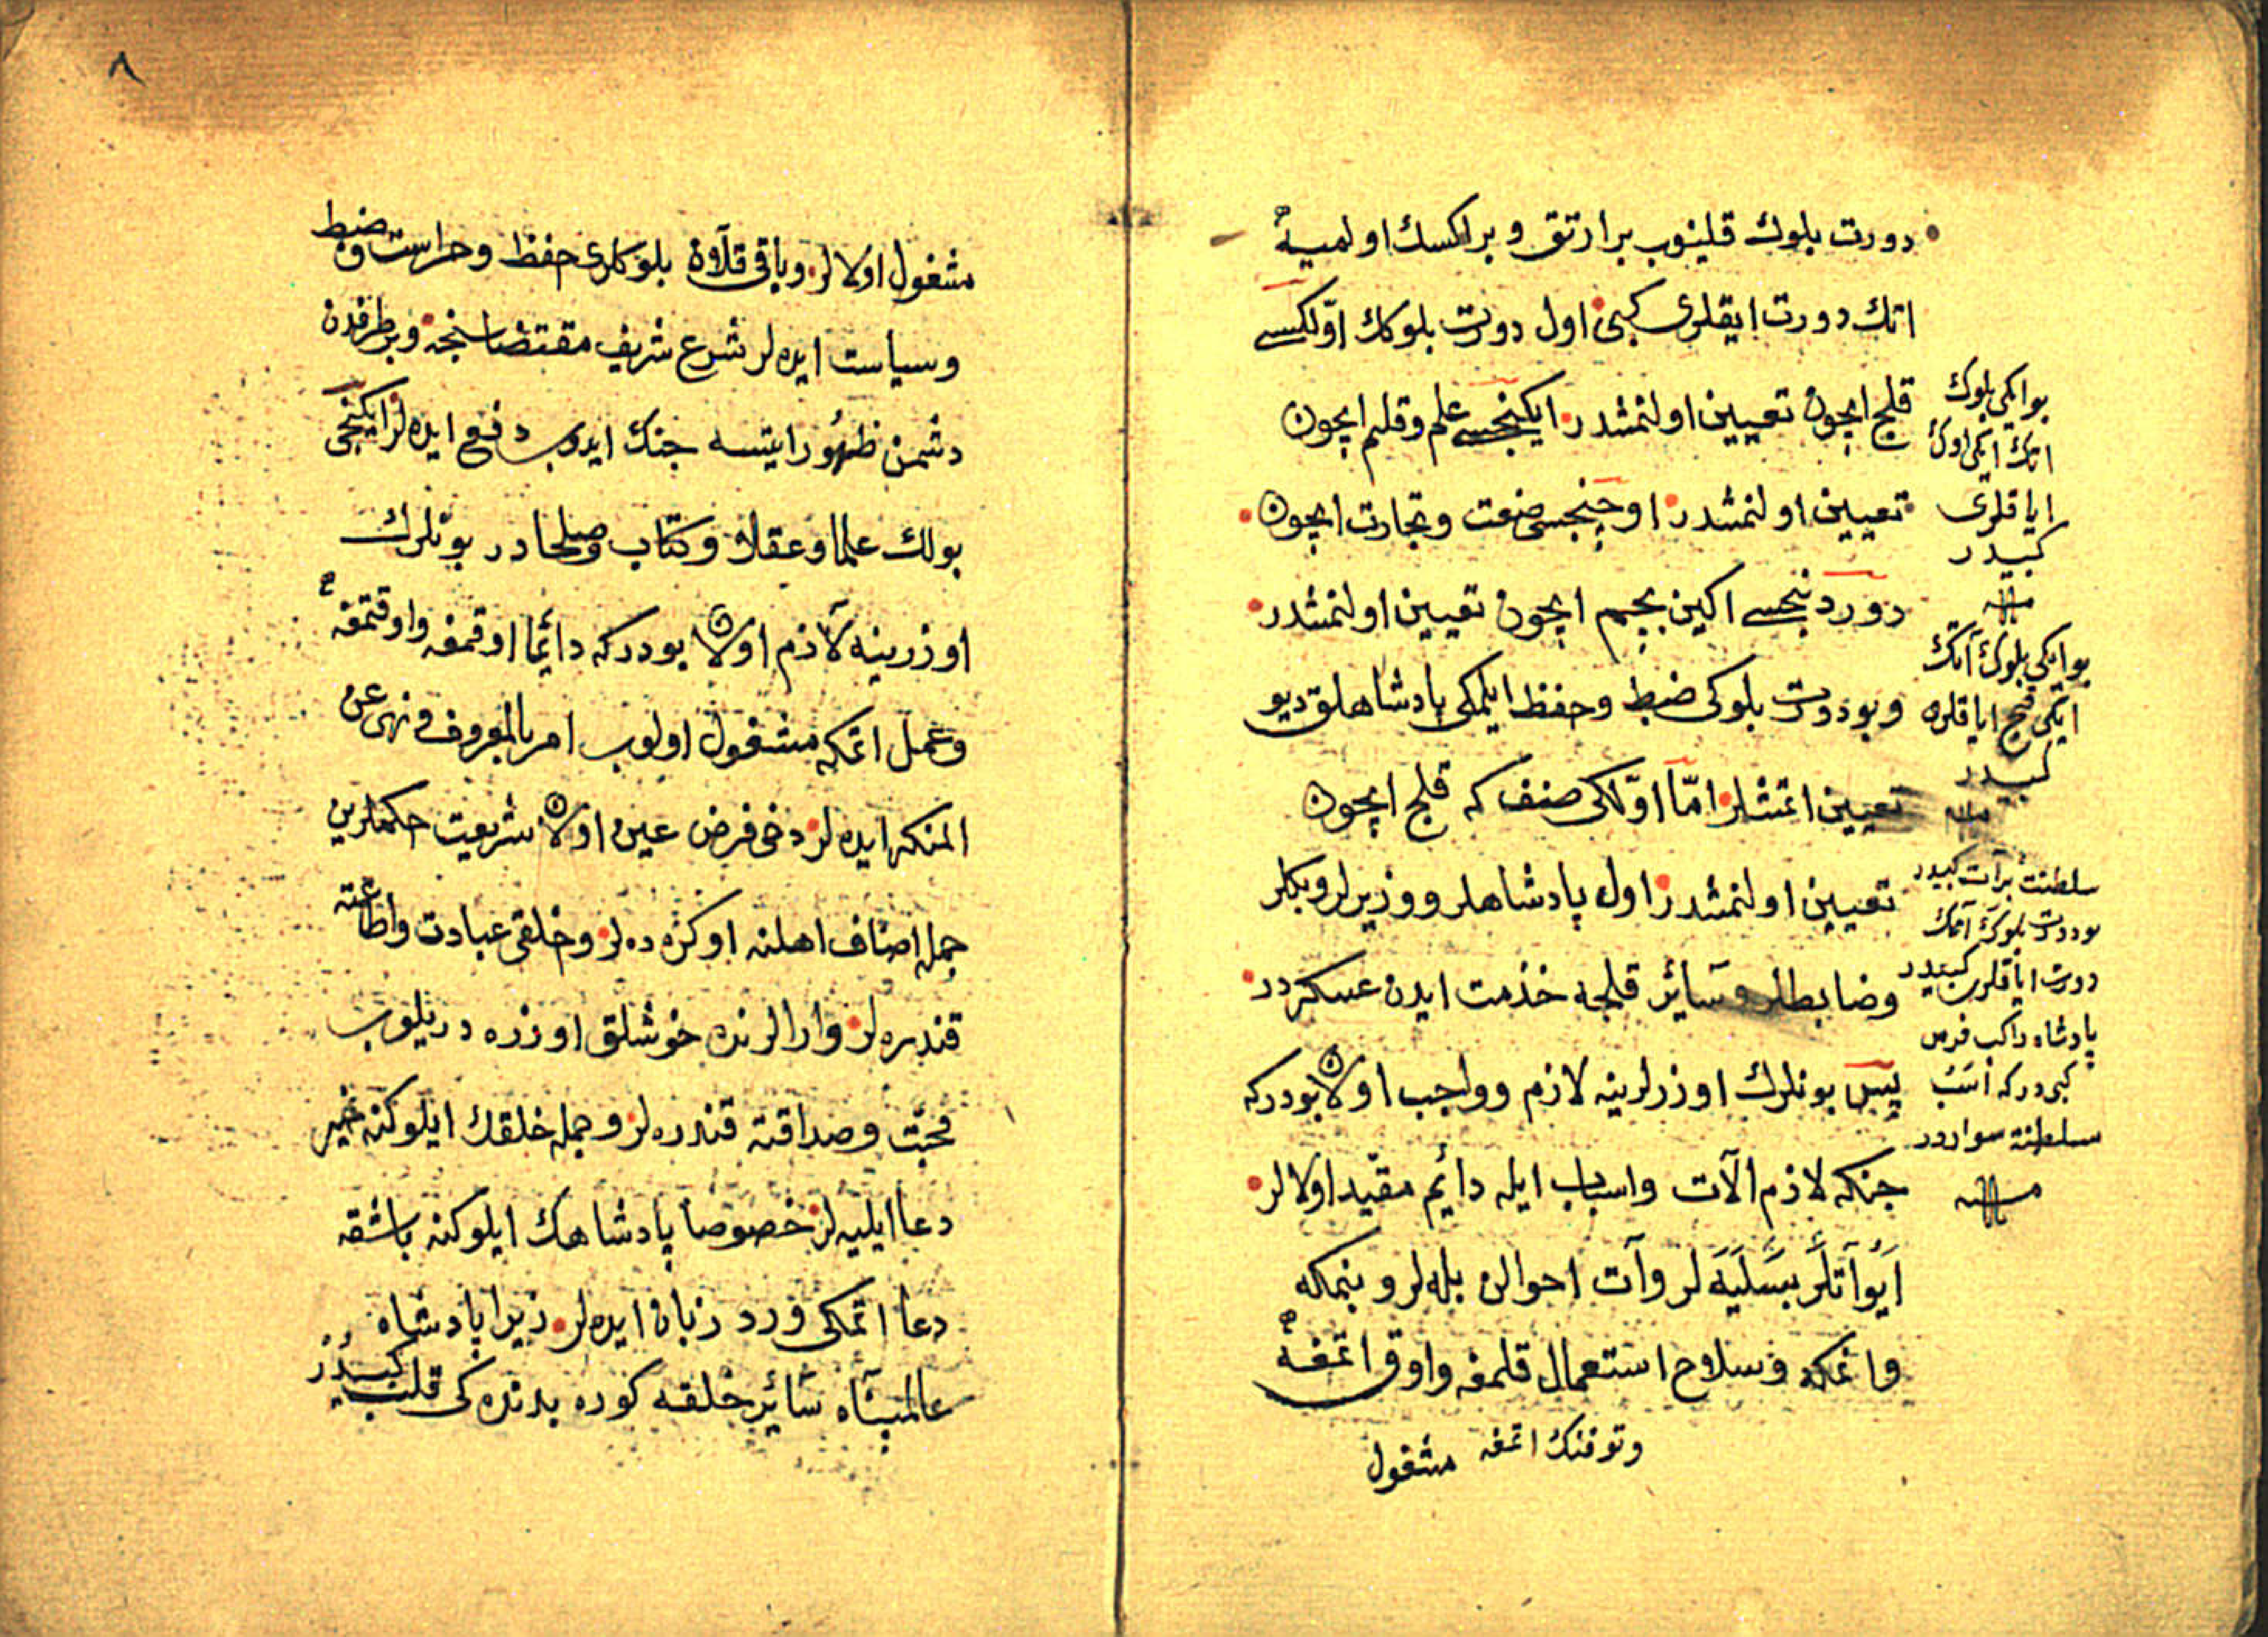 دورت بلوك قلينوب برارتق و براكسك اولميه
اتك دورت ايقلرى كبى اول دورت بلوكك اوّلكىسى
قلج ايچون تعيين اولنمشدر ايكنجىسى علم و قلم ايچون
تعيين اولنمشدر اوچنجىسى صنعت وتجارت ايچون
دوردنجىسى اكين بچم ايچون تعيين اولنمشدر
وبو دورت بلوكى ضبط وحفظ ايلمكى پادشاهلق ديو
تعيين اتمشلر امّا اوّلكى صنف كه قلج ايچون
تعيين اولنمشدر اول پادشاهلر ووزيرلر وبكلر
وضابطلر وسائر قلجه خذمت ايدن عسكردر
پس بونلرك اوزرلرينه لازم وواجب اولان بودركه
جنكه لازم الآت واسباب ايله دائم مقيّد اولالر
أيو آتلر بسليه لر وآت احوالن بله لر وبنمكه
وانمكه وسلاح استعمال قلمغه واوق اتمغه
وتوفنك اتمغه مشغول
بو ايكى بلوك
اتك ايكى اوك
اياقلرى
كبيدر
منه
بو ايكى بلوك آتك
ايكى قيچ اياقلره
كبيدر
منه
سلطنت برآت كبيدر
بو دورت بلوك آتك
دورت اياقلرى كبيدر
پادشاه راكب فرس
كبى دركه اسب
سلطنته سواردر
منه
٨
مشغول اولالر وباقى قلان بلوكلرى حفظ وحراست وضبط
وسياست ايده لر شرع شريف مقتضاسنجه وبر طرفدن
دشمن ظهور ايتسه جنك ايدوب دفع ايده لر ايكنجى
بولك علما وعقلا وكتّاب وصلحادر بونلرك
اوزرينه لازم اولان بودركه دائما اوقمغه واوقتمغه
وعمل اتمكه مشغول اولوب امر بالمعروف ونهى عن
المنكر ايده لر دخى فرض عين اولان شريعت حكملرين
جمله اصناف اهلنه اوكره ده لر وخلقى عبادت واطاعته
قندره لر وارالرنده خوشلق اوزره دريلوب
محبّت وصداقته قندره لر وجمله خلقك ايلوكنه خير
دعا ايليه لر خصوصا پادشاهك ايلوكنه باشقه
دعا اتمكى ورد زبان ايده لر زيرا پادشاه
عالمپناه سائر خلقه كوره بدنده كى قلب كبيدر